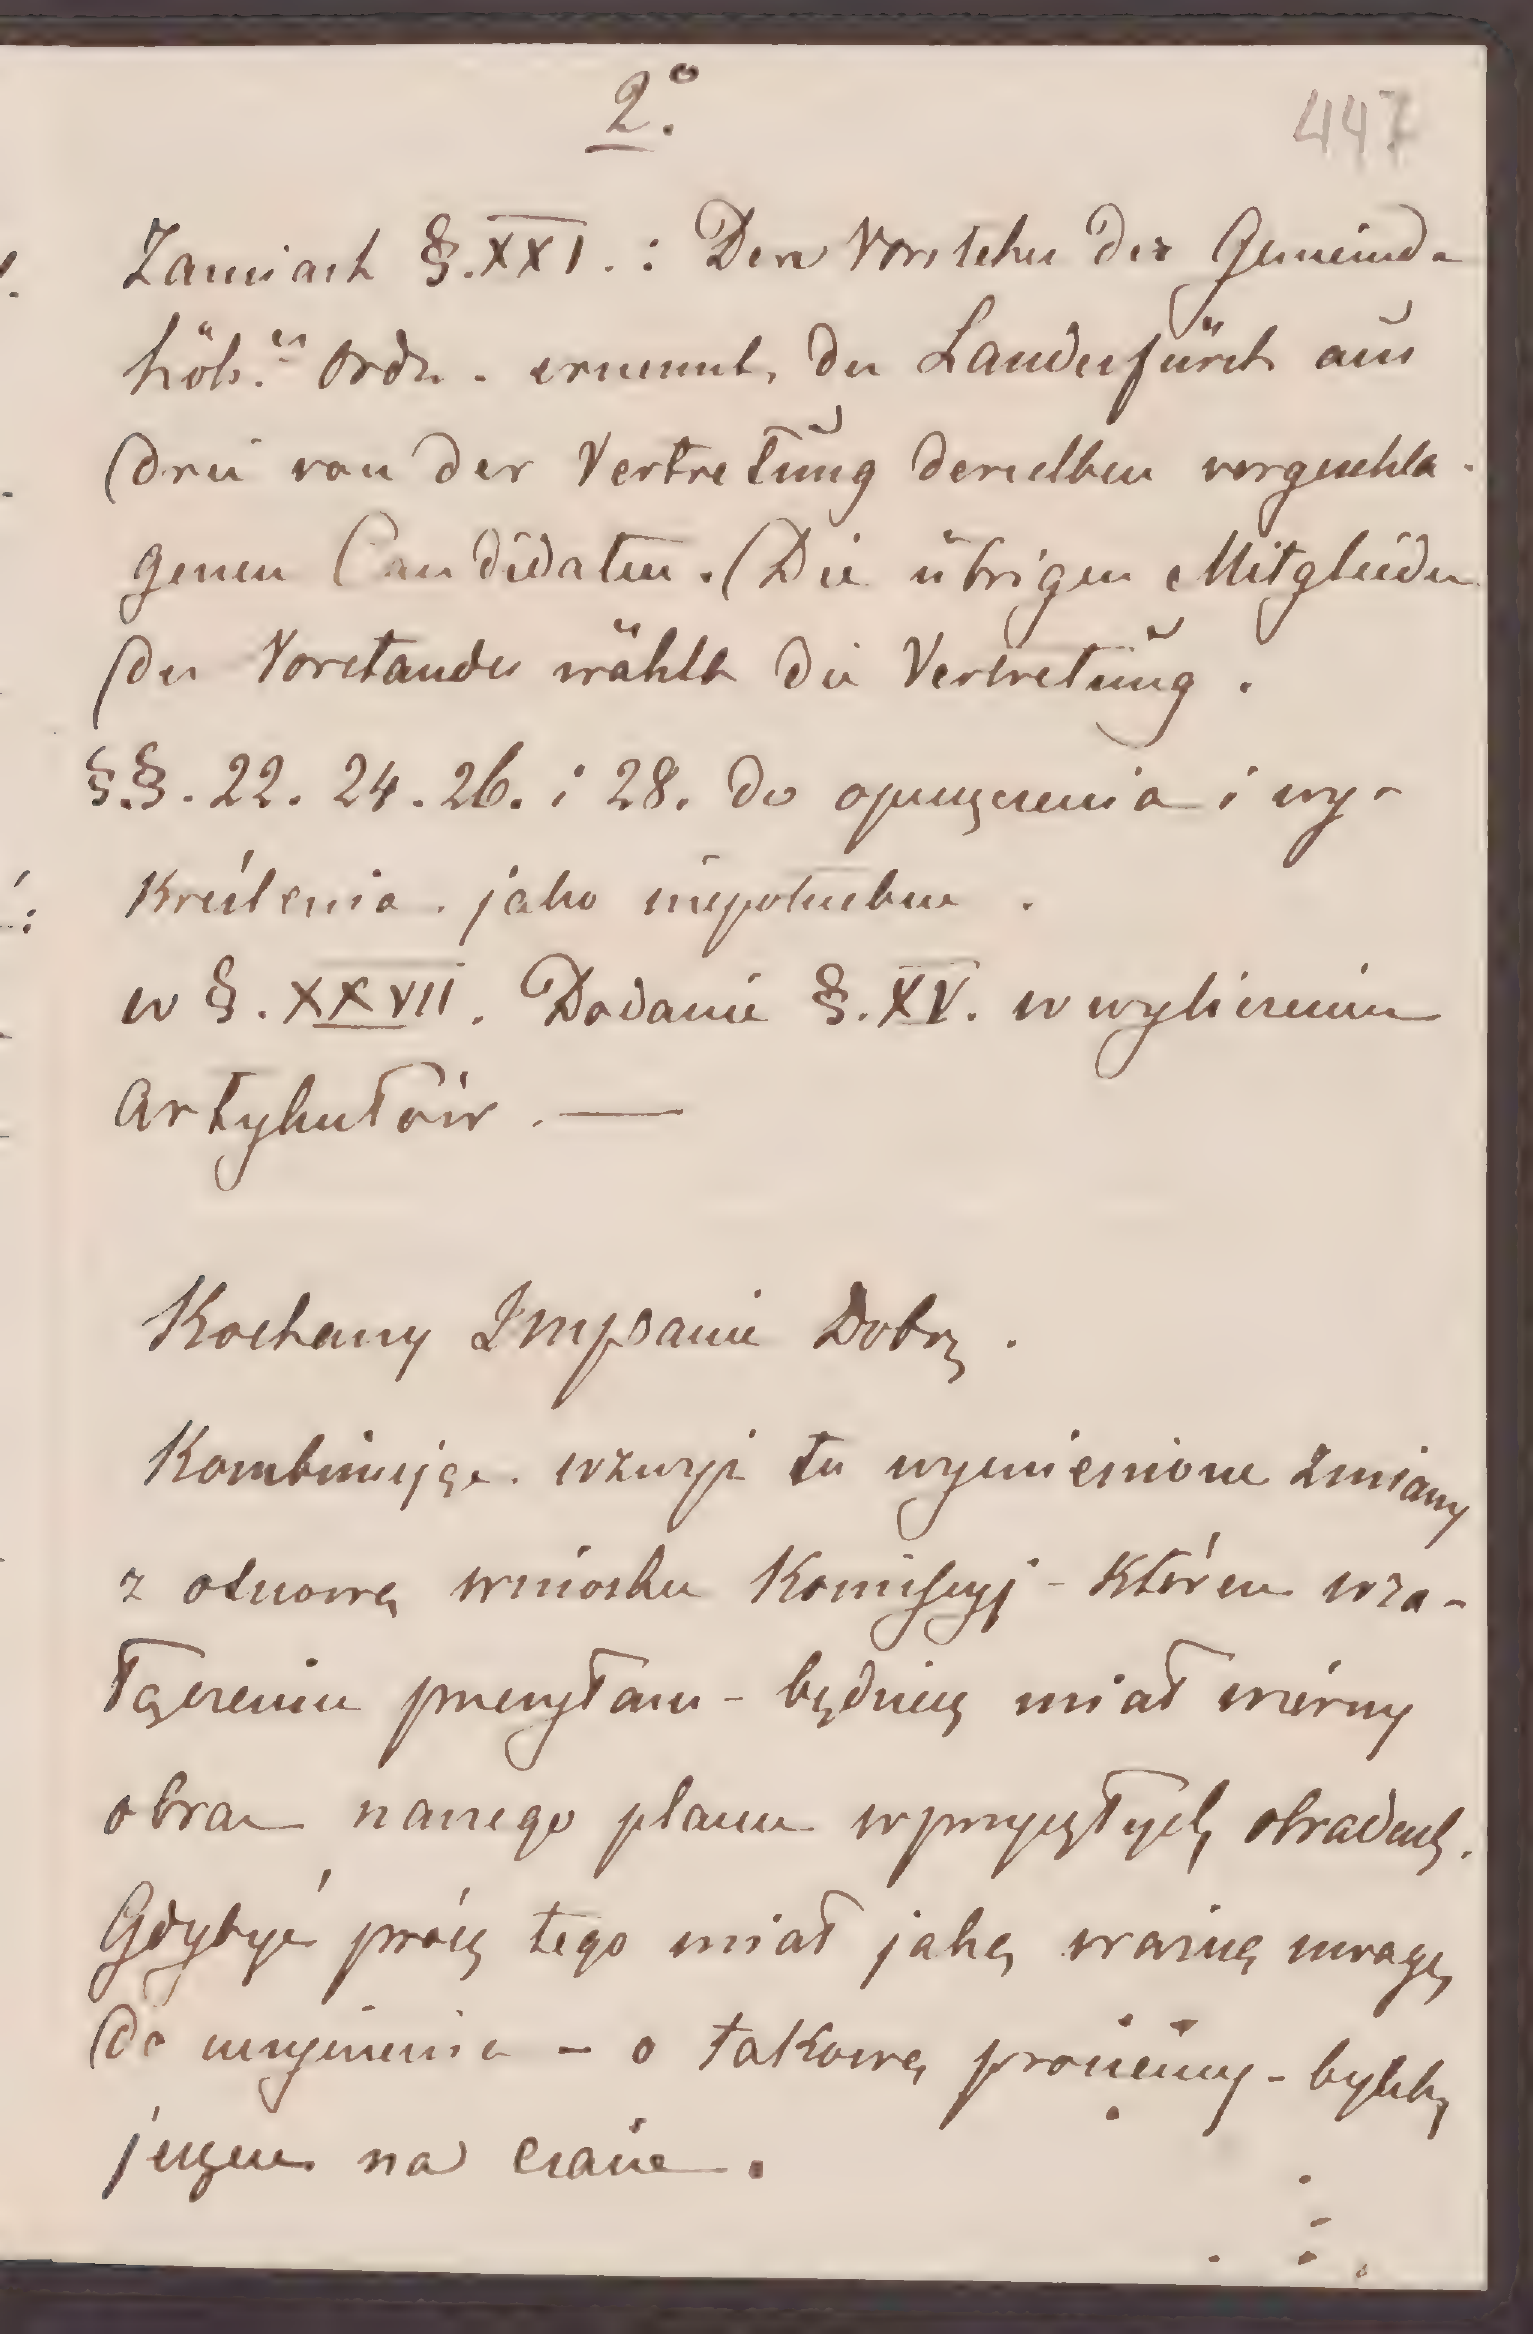 2.°
447
Zamiast §. XXI. : Den Vorsteher der Gemeinde
höh.en Ordn. ernennt, der Landesfürst aus
drei von der Vertretung derselben vorgeschla-
genen Candidaten. Die übrigen Mitglieder
des Vorstandes wählt die Vertretung.
§.§. 22. 24. 26. i 28. do opuszczenia i wy-
kreślenia. jako niepotrzebne.
w §. XXVII. Dodanie §. XV. w wyliczeniu
Artykułów. —
Kochany Jmpanie Dobrz.
Kombinując wżwyż tu wymienione zmiany
z osnową wniosku Komissyj - którem w za-
łączeniu przesyłam - będziesz miał wierny
obraz naszego planu w przyszłych obradach.
Gdybyś prócz tego miał jaką ważną uwagę
do uczynienia - o takową prosiemy - byłoby
jeszcze na czasie.